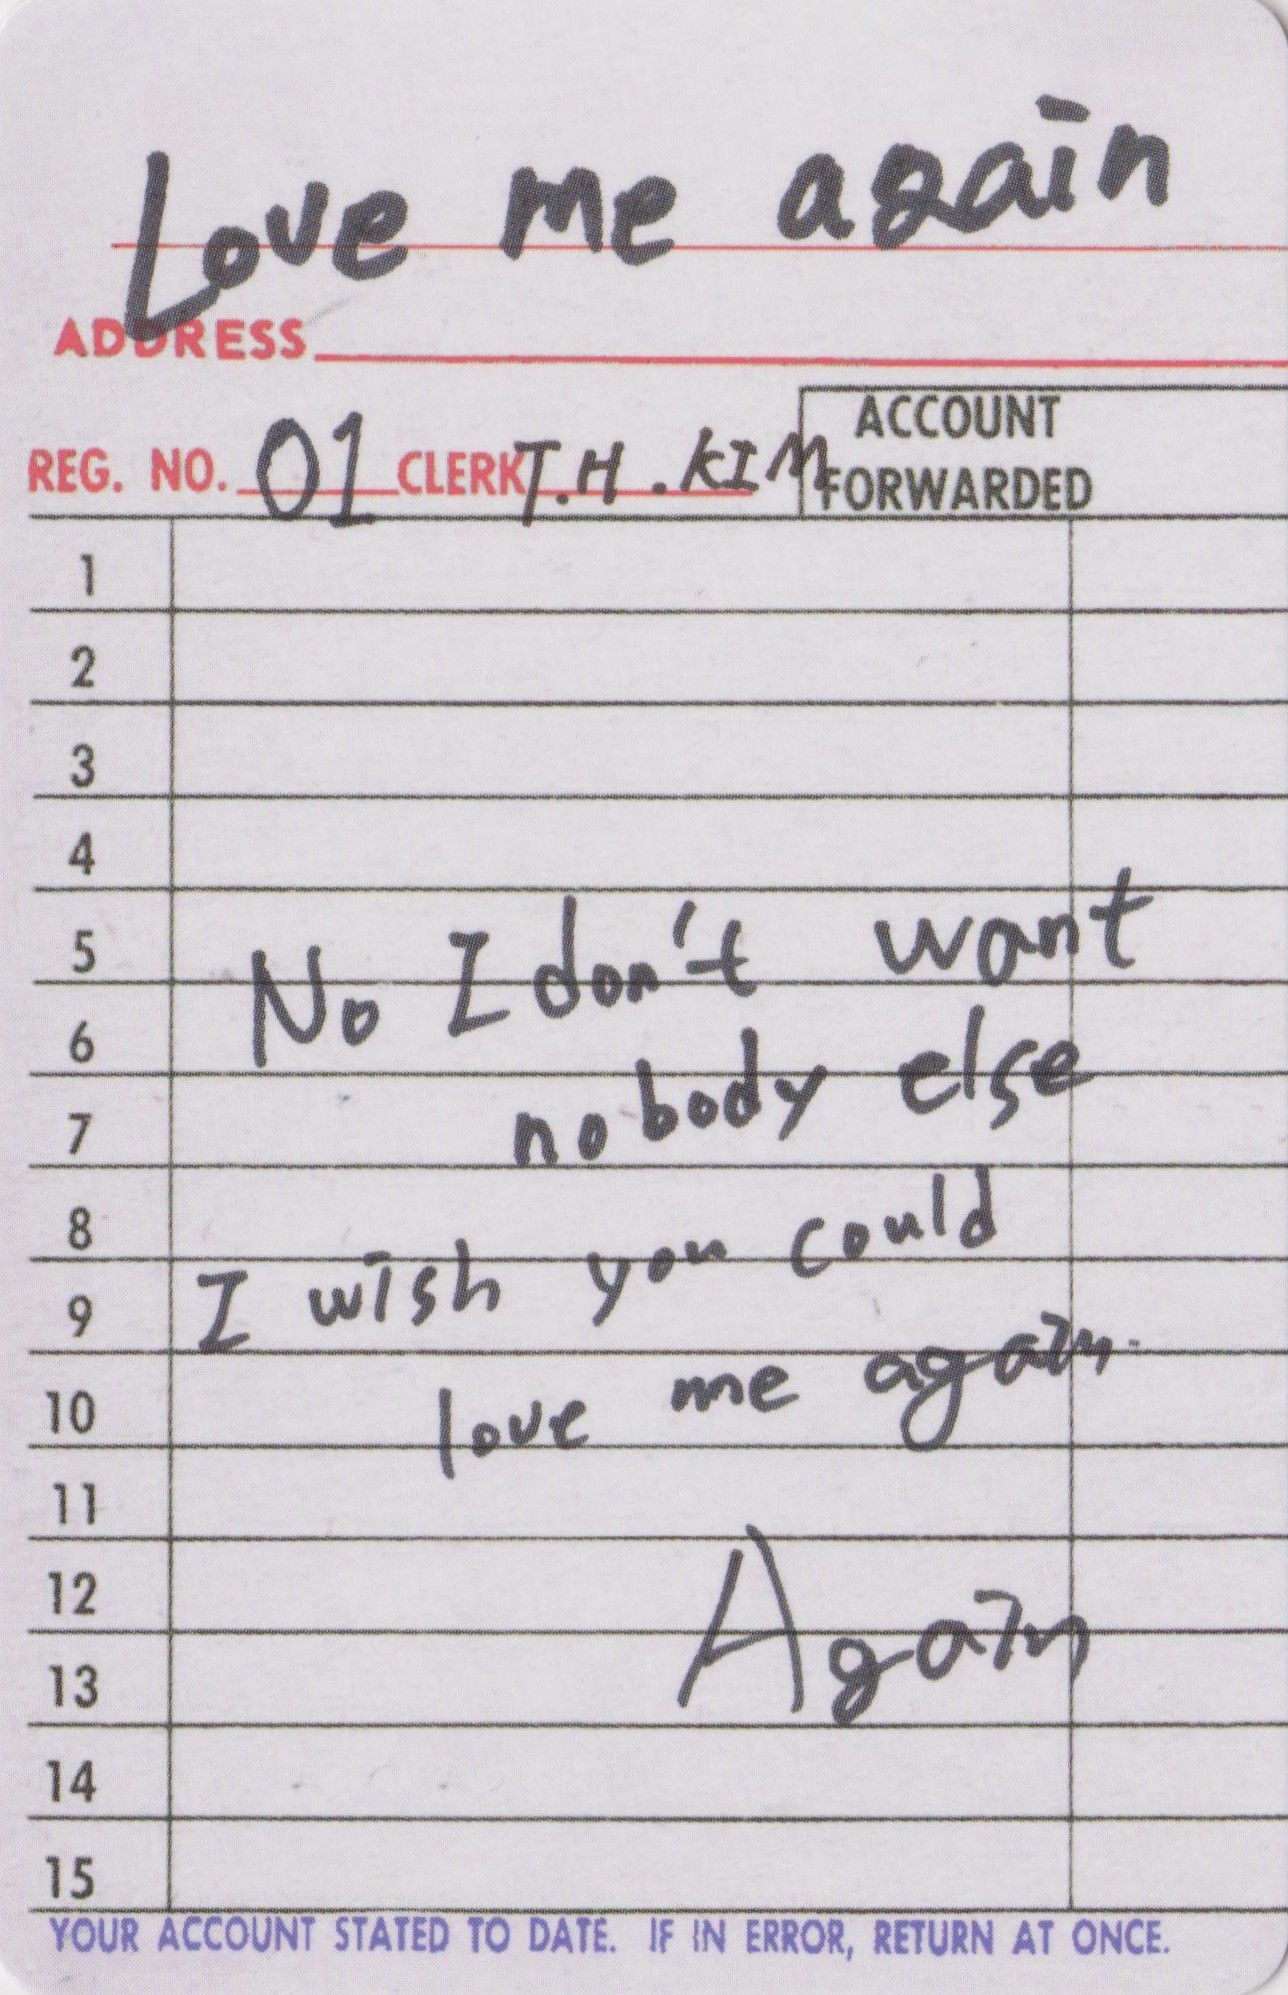 Love me again
ADDRESS
REG. NO. 01 CLERK T.H.KIM
ACCOUNT
FORWARDED
1
2
3
4
5
No I don't want
6
nobody else
7
8
I wish you could
9
love me again.
10
11
12
Again
13
14
15
YOUR ACCOUNT STATED TO DATE. IF IN ERROR, RETURN AT ONCE.